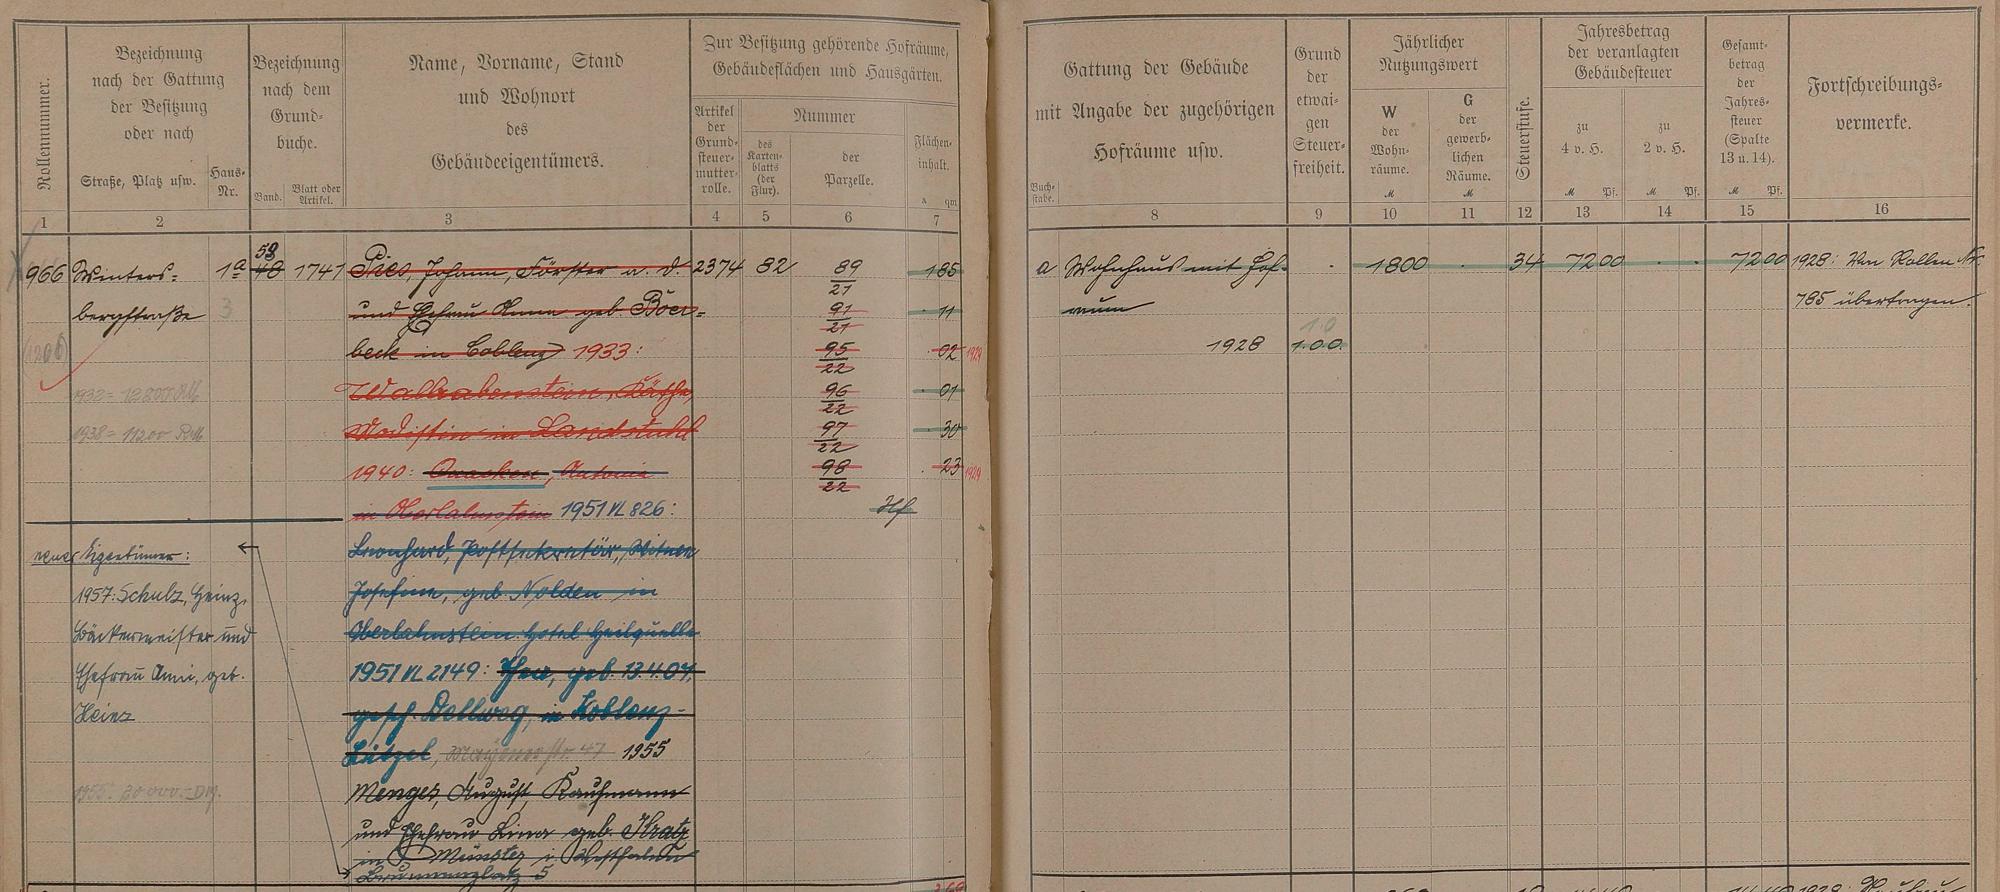 Rollennummer.
Bezeichnung
nach der Gattung
der Besitzung
oder nach
Straße, Platz usw.
Haus-
Nr.
Bezeichnung
nach dem
Grund-
buche.
Band.
Blatt oder
Artikel.
Name, Vorname, Stand
und Wohnort
des
Gebäudeeigentümers.
Zur Besitzung gehörende Hofräume,
Gebäudeflächen und Hausgärten.
Artikel
der
Grund-
steuer-
mutter-
rolle.
Nummer
des
Karten-
blatts
(der
Flur).
der
Parzelle.
Flächen-
inhalt.
a qm
1 2 3 4 5 6 7
Gattung der Gebäude
mit Angabe der zugehörigen
Hofräume usw.
Buch-
stabe.
Grund
der
etwai-
gen
Steuer-
freiheit.
Jährlicher
Nutzungswert
W
der
Wohn-
räume.
M
G
der
gewerb-
lichen
Räume.
M
Steuerstufe.
Jahresbetrag
der veranlagten
Gebäudesteuer
zu
4 v. H.
M Pf.
zu
2 v. H.
M Pf.
Gesamt-
betrag
der
Jahres-
steuer
(Spalte
13 u. 14).
M Pf.
Fortschreibungs-
vermerke.
8 9 10 11 12 13 14 15 16
53
966 Winters- 1a 48 1741 Pies, Johann, Förster a. D. 2374 82 89/21 1 85
bergstraße 3 und Ehefrau Anna geb. Böer- 91/21 11
beck in Coblenz 1933: 95/22 02 1929
(1206)
1932= 12800 RM Wallrabenstein, Käthe, 96/22 01
1938= 11200 RM Modistin in Landstuhl 97/22 30
1940: Antonie 98/22 23 1929
in Oberlahnstein 1951 VL 826: Hf
neuer Eigentümer: Leonhard, Postsekretär, Witwe
1957: Schulz, Heinz, Josefine, geb. Nolden in
Bäckermeister und Oberlahnstein Hotel Heilquelle
Ehefrau Anni, geb. 1951 VL 2149: geb. 13.4.07,
Heinz gesch. Dellweg, in Koblenz-
Lützel, Mayenerstr. 47 1955
1955: 30 000.- DM. Menges, August, Kaufmann
und Ehefrau Lina geb. Kratz
in Münster i. Westfalen
Brunnenplatz 5
a Wohnhaus mit Hof- 1800 34 72 00 72 00 1928: Von Rollen Nr.
raum 785 übertragen.
1.0
1928 1.00.